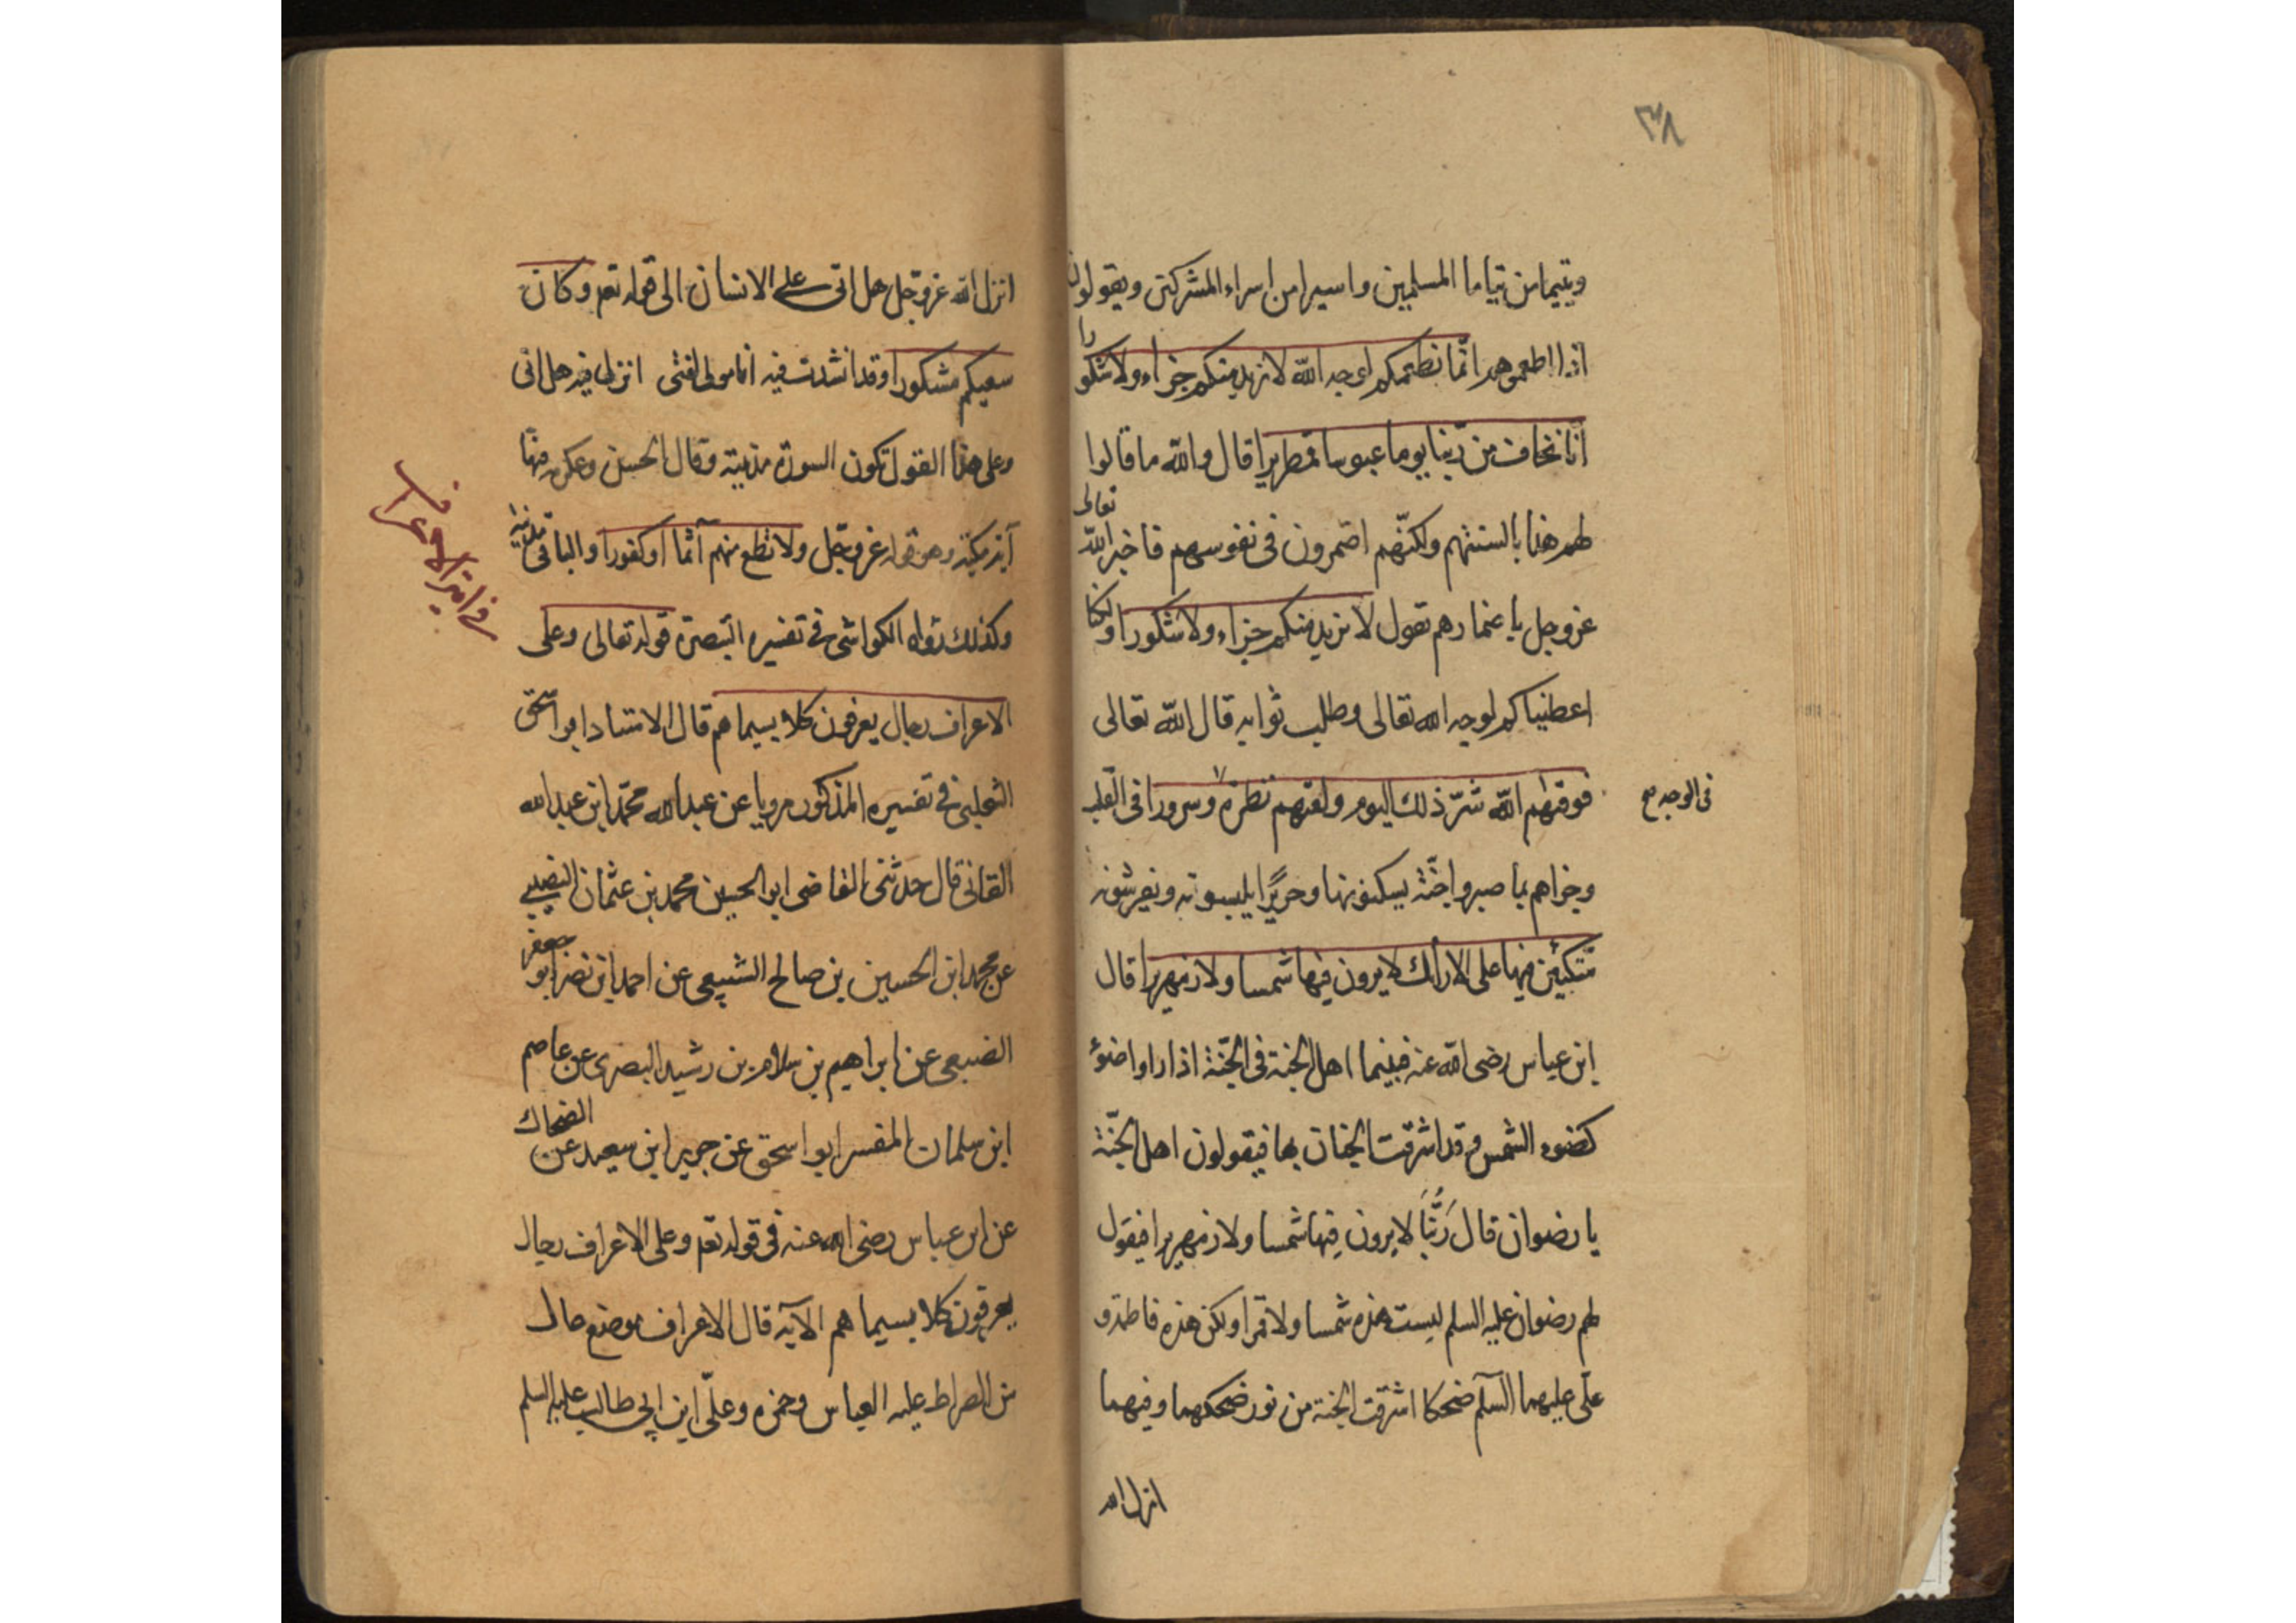 ٣٨
ويتيما من يتاما المسلمين واسيرا من اسراء المشركين ويقولون
اذا اطعموهم انّما نطعمكم لوجه الله لا نريد منكم جزاء ولا شكورا
انا نخاف من ربّنا يوما عبوسا قمطريرا قال والله ما قالوا
لهم هذا بالسنتهم ولكنّهم اضمرون فى نفوسهم فاخبر الله تعالى
عز وجل باضمارهم تقول لا نريد منكم جزاء ولا شكورا ولكنا
اعطيناكم لوجه الله تعالى وطلب ثوابه قال الله تعالى
فوقهم الله شرّ ذلك اليوم ولقهم نظرة وسرورا فى القلب
فى الوجه صح
وجزاهم بما صبروا جنّة يسكنونها وحريرًا يلبسونه ويفرشونه
متكئين فيها على الارائك لا يرون فيها شمسا ولا زمهريرا قال
ابن عباس رضى الله عنه فبينما اهل الجنة فى الجنّة اذا راوا ضوءً
كضوء الشمس وقد اشرقت الجنان بها فيقولون اهل الجنّة
يا رضوان قال رَبُّنَا لا يرون فيها شمسا ولا زمهريرا فيقول
لهم رضوان عليه السلم ليست هذه شمسا ولا قمرا ولكن هذه فاطمة و
علّى عليهما السّلم ضحكا اشرقت الجنة من نور ضحكهما وفيهما
انزل الله
انزل الله عز وجل هل اتى على الانسان الى قوله تع وكان
سعيكم مشكورا وقد انشدت فيه انا مولى لفتى انزل فيه هل اتى
وعلى هذا القول تكون السورة مدنية وقال الحسن وعكرمه فيها
آية مكية وهى قوله عز وجل ولا تطع منهم آثما او كفورا والباقى مدنية
وكذلك رواه الكواشى فى تفسيره التبصرة قوله تعالى وعلى
فى اية الاعراف
الاعراف رجال يعرفون كلا بسيماهم قال الاستاد ابو اسحق
الثعلبى فى تفسيره المذكور مرويا عن عبد الله محمّد ابن عبد الله
القانى قال حدثنى القاضى ابو الحسين محمد بن عثمان النصيبى
عن محمد ابن الحسين بن صالح الشبيعى عن احمد ابن نصر ابو جعفر
الضبعى عن ابراهيم بن سلام بن رشيد البصرى عن عاصم
ابن سلمان المفسر ابو اسحق عن جرير ابن سعيد عن الضحاك
عن ابن عباس رضى الله عنه فى قوله تع وعلى الاعراف رجال
يعرفون كلا بسيماهم الآيه قال الاعراف موضع عال
من الصراط عليه العباس وحمزه وعلّى ابن ابى طالب عليه السلم